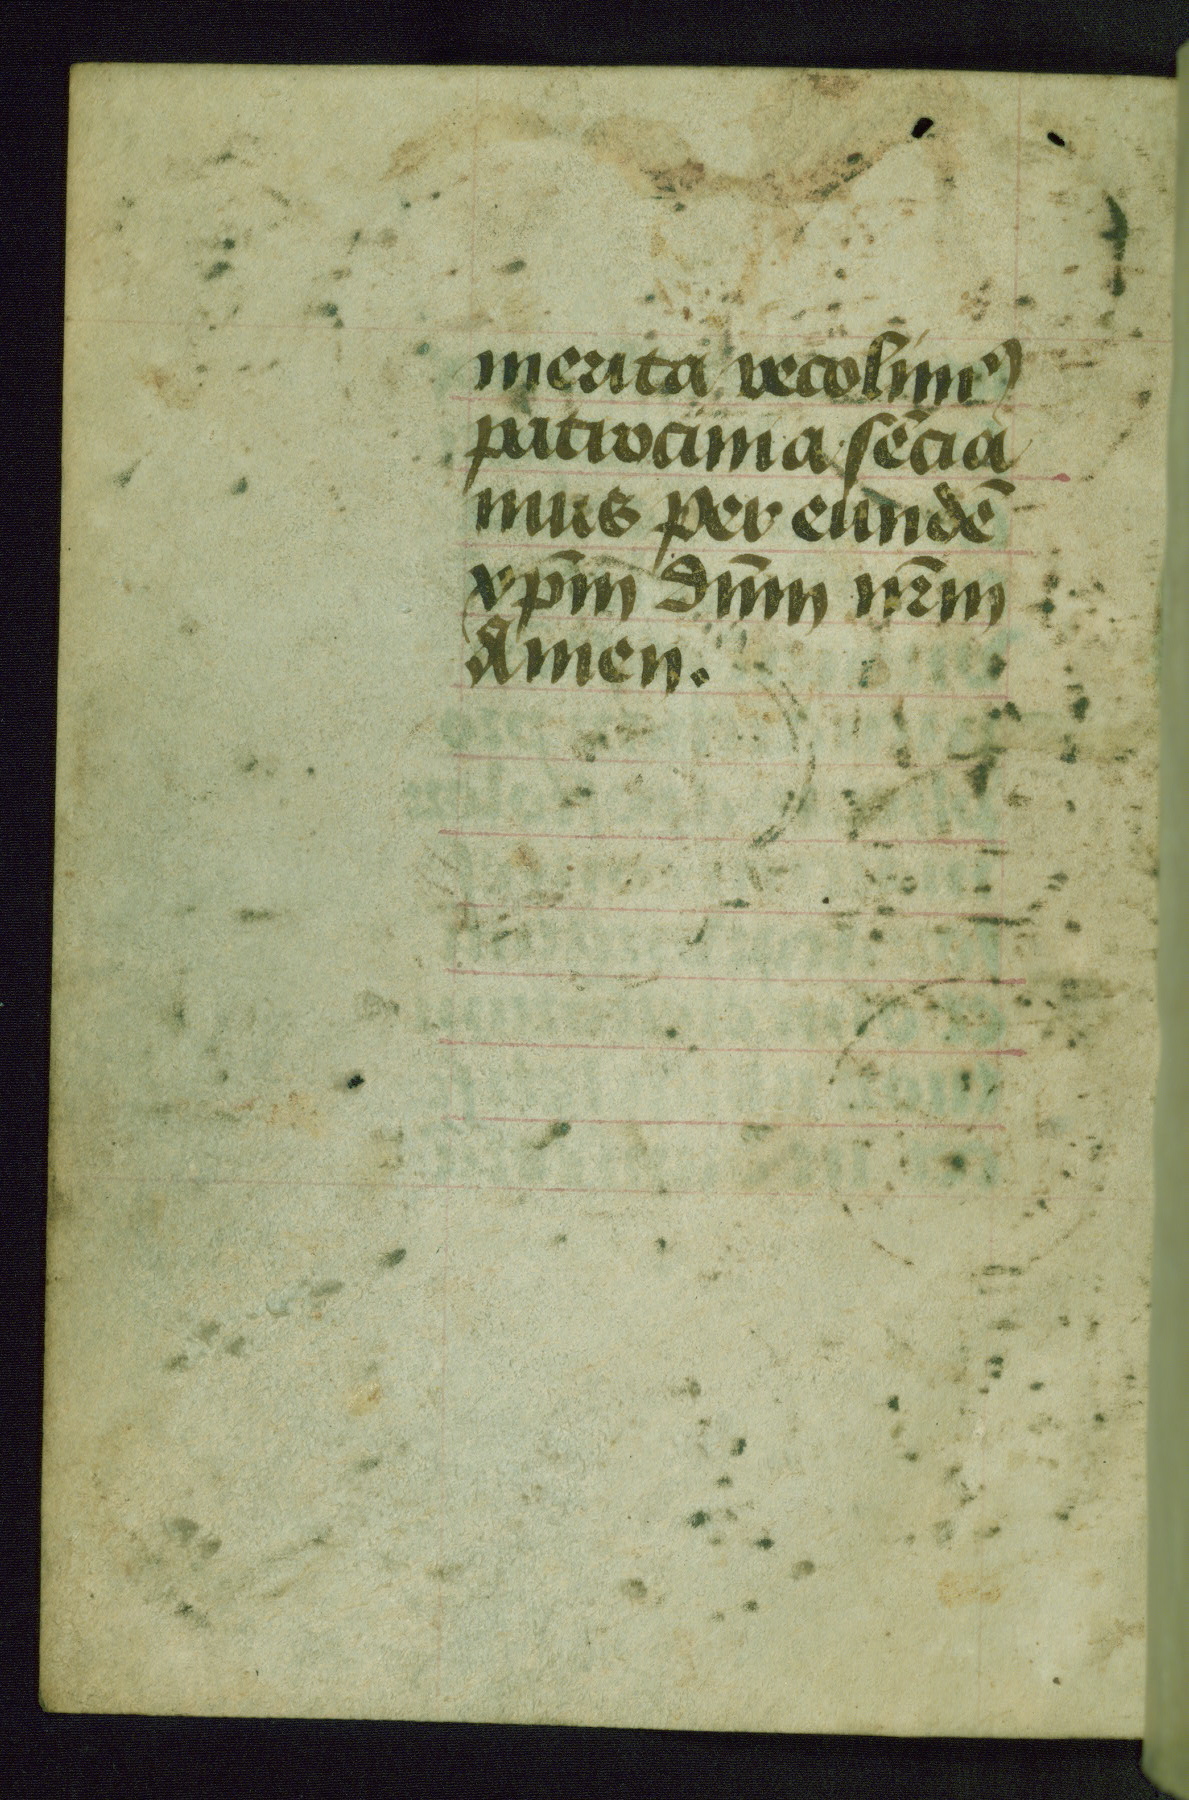 merita recolimꝰ
patrocinia sēcia
mus per eundē
xp̄m dn̄m nr̄m
Amen.